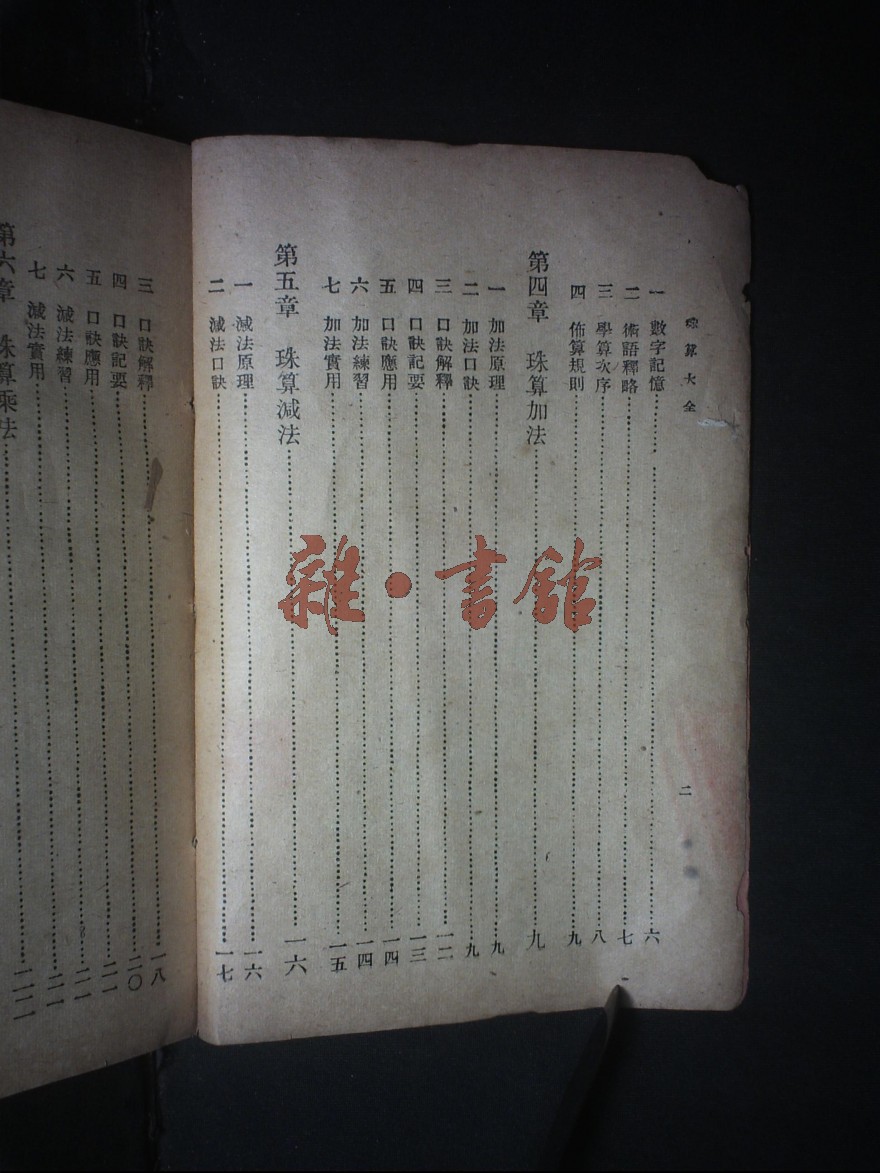 珠算大全
二
一 數字記憶……六
二 術語釋略……七
三 學算次序……八
四 佈算規則……九
第四章 珠算加法……九
一 加法原理……九
二 加法口訣……九
三 口訣解釋……一二
四 口訣記要……一三
五 口訣應用……一四
六 加法練習……一四
七 加法實用……一五
第五章 珠算減法……一六
一 減法原理……一六
二 減法口訣……一七
三 口訣解釋……一八
四 口訣記要……二〇
五 口訣應用……二一
六 減法練習……二一
七 減法實用……二二
第六章 珠算乘法……
雜·書館